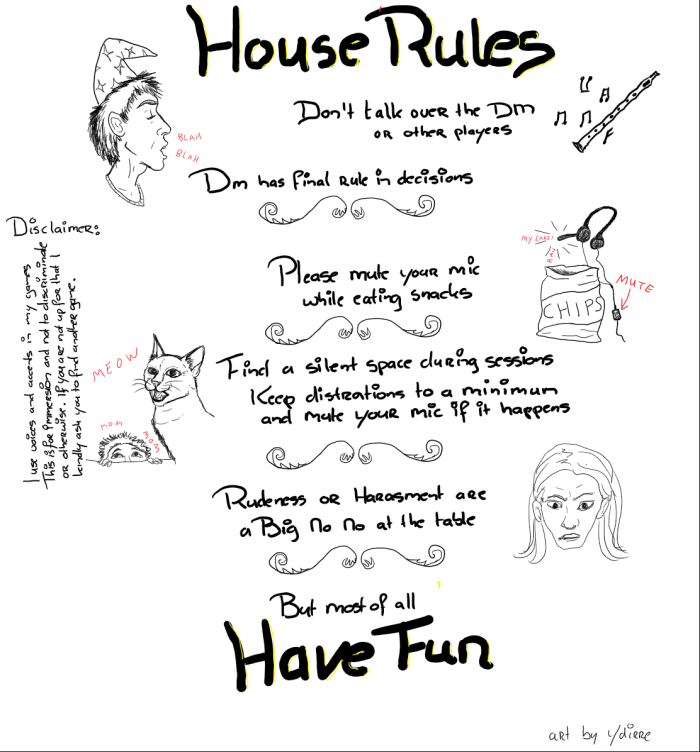 House Rules
Don't talk over the DM
or other players
BLAH
BLAH
Dm has final rule in decisions
Disclaimer:
I use voices and accents in my games
This is for Immersion and not to discriminate
or otherwise. If you are not up for that I
kindly ask you to find another game.
Please mute your mic
while eating snacks
MY EARS!
CHIPS
MUTE
MEOW
MOM
MOM
Find a silent space during sessions
Keep distrations to a minimum
and mute your mic if it happens
Rudeness or Harasment are
a Big No No at the table
But most of all
Have Fun
art by